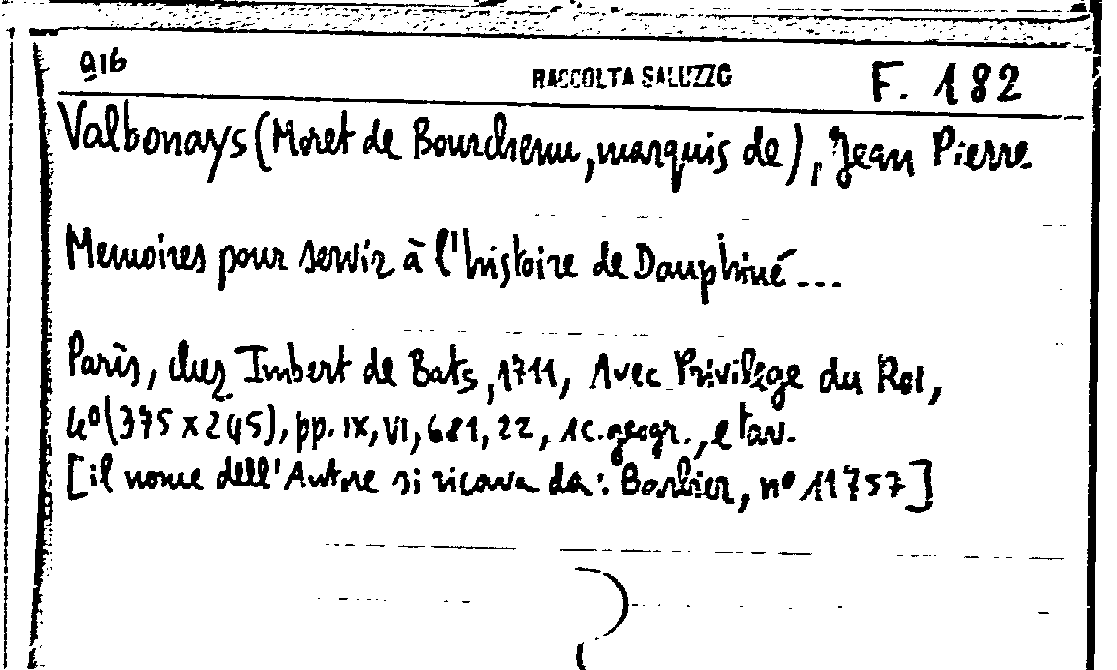 916 RACCOLTA SALUZZO F. 182
Valbonays (Moret de Bourchenu, marquis de), Jean Pierre
Memoires pour servir à l'histoire de Dauphiné...
Paris, chez Imbert de Bats, 1711, Avec Privilege du Roi,
4º (375 x 245), pp. IX, VI, 681, 22, 1c. geogr., e tav.
[il nome dell'Autore si ricava da: Barbier, nº 11757]